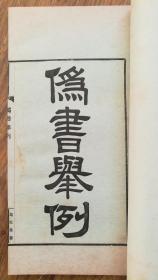 偽書舉例